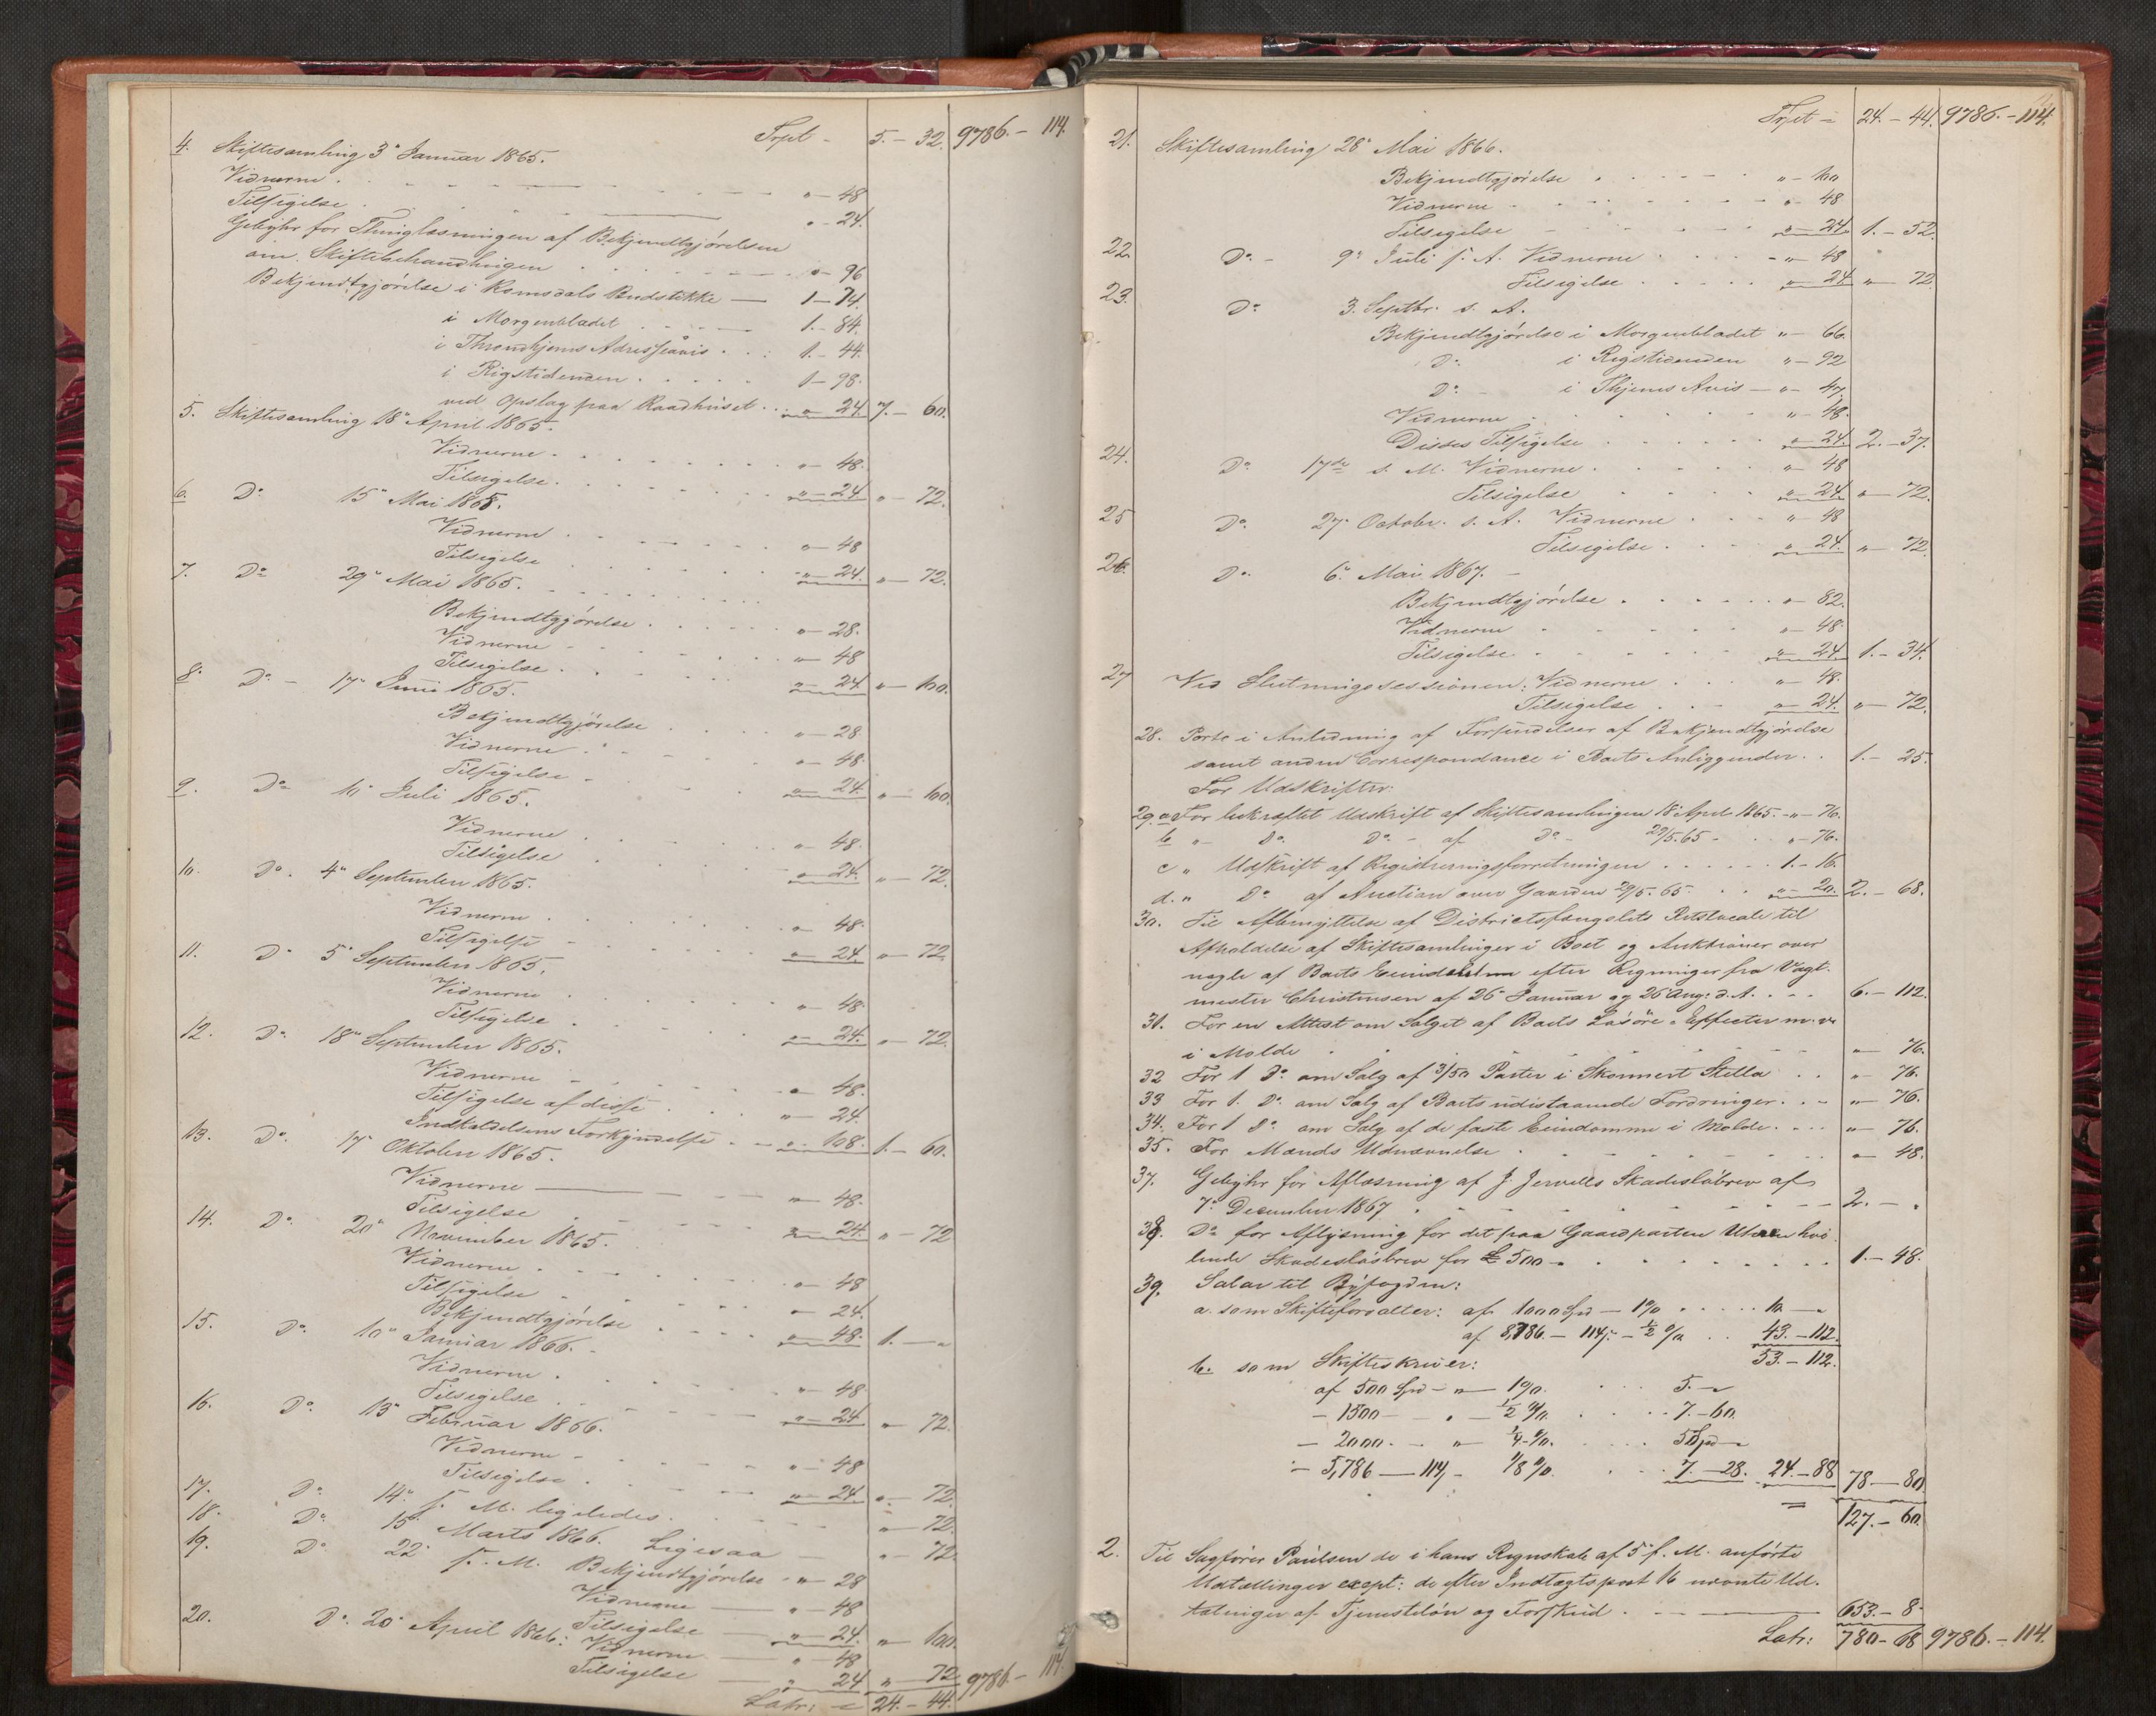 Trpt - 5. - 32. 9786. - 114.
4. Skiftesamling 3de Januar 1865.
Vidnerne . " - 48
Tilsigelse . " - 24.
Gebyhr for Thinglæsningen af Bekjendtgjørelsen
om Skiftebehandlingen . " - 96
Bekjendtgjørelse i Romsdals Budstikke — 1 - 74.
i Morgenbladet . 1. - 84.
i Throndhjems Adresseavis . . : 1. - 44.
i Rigstidenden . . . . 1 - 98.
ved Opslag paa Raadhuset . . " - 24. 7. - 60.
5. Skiftesamling 18de April 1865.
Vidnerne . . . " - 48.
Tilsigelse . . . " - 24 " - 72.
6. Do 15de Mai 1865.
Vidnerne . . . " - 48
Tilsigelse . . . " - 24. " - 72.
7. Do 29de Mai 1865.
Bekjendtgjørelse . . . " - 28.
Vidnerne . . . " - 48
Tilsigelse . . . " - 24 " - 100.
8. Do - 17de Juni 1865.
Bekjendtgjørelse . . . " - 28
Vidnerne . . . " - 48.
Tilsigelse . . . " - 24. " - 100.
9. Do 10de Juli 1865.
Vidnerne . . . " - 48.
Tilsigelse . . . " - 24. " - 72.
10. Do. 4de September 1865.
Vidnerne . . . " - 48.
Tilsigelse . . . " - 24. " - 72.
11. Do 5de September 1865.
Vidnerne . . . " - 48.
Tilsigelse . . . " - 24. " - 72.
12. Do. 18de September 1865.
Vidnerne . . . " - 48.
Tilsigelse af disse . . . " - 24.
Indkaldelsens Forkyndelse . - " - 108. 1. - 60.
13. Do. 17de Oktober 1865.
Vidnerne — " - 48.
Tilsigelse . . . " - 24. " - 72
14. Do. 20de November 1865.
Vidnerne . . . " - 48
Tilsigelse . . . " - 24.
Bekjendtgjørelse . . . " - 48. 1. - "
15. Do. 10de Januar 1866.
Vidnerne . . . " - 48
Tilsigelse . . . " - 24 " - 72.
16. Do. 13de Februar 1866.
Vidnerne . . . " - 48
Tilsigelse . . . " - 24. " - 72.
17. Do. 14de s. M. ligeledes . . . " - 72.
18. Do. 15de Marts 1866. Ligesaa " - 72.
19. Do. 22de s. M. Bekjendtgjørelse - " - 28
Vidnerne — " - 48
Tilsigelse — " - 24. " - 100.
20. Do. 20de April 1866: Vidnerne — " - 48
Tilsigelse — " - 24 " - 72. 9786. - 114.
Latr: 24. - 44.
Trpt - 24. - 44. 9786. - 114.
21. Skiftesamling 28de Mai 1866.
Bekjendtgjørelse . . . " - 100
Vidnerne . . . " - 48
Tilsigelse . . . " - 24. 1. - 52.
22. Do. - 9de Juli s. A. Vidnerne . . . " - 48
Tilsigelse . . . " - 24. " - 72.
23. Do. 3. Septbr. s. A.
Bekjendtgjørelse i Morgenbladet " - 66.
Do. i Rigstidenden " - 92
Do. - i Thjems Avis — " - 47.
Vidnerne . . . " - 48.
Disses Tilsigelse . . . " - 24. 2. - 37.
24. Do. 17de s. M. Vidnerne . . . " - 48
Tilsigelse . . . " - 24. " - 72.
25 Do. 27. Octobr. s. A. Vidnerne . . . " - 48
Tilsigelse . . . " - 24. " - 72.
26. Do. 6te Mai 1867. -
Bekjendtgjørelse . . . " - 82.
Vidnerne . . . " - 48.
Tilsigelse . . . " - 24. 1. - 34.
27 Ved Slutningssessionen: Vidnerne . . . " - 48.
Tilsigelse . . . " - 24. " - 72.
28. Porto i Anledning af Forsendelser af Bekjendtgjørelse
samt anden Correspondance i Boets Anliggender . . 1. - 25.
For Udskrifter:
29. a For bekræftet Udskrift af Skiftesamlingen 18de April 1865. - " - 76.
b " - Do. Do. - af Do - 29/5.65 - . . " - 76.
c " Udskrift af Registreringsforretningen . . . 1. - 16.
d. " Do. af Auction over Gaarden 29/5. 65. . . " - 20. 2. - 68.
30. Til Afbenyttelse af Districtsfængslets Retslocale til
Afholdelse af Skiftesamlinger i Boet og Auktioner over
nogle af Boets Eiendele efter Regninger fra Vagt-
mester Christensen af 26de Januar og 26 Aug. d. A. . . . 6. - 112.
31. For en Attest om Salget af Boets Løsøre-Effecter m. v.
i Molde . . . " - 76.
32 For 1 Do. om Salg af 3/50 Parter i Skonnert Stella . . " - 76.
33 For 1. Do. om Salg af Boets udistaaende Fordringer . . - " - 76.
34. For 1 Do. om Salg af de faste Eiendomme i Molde . . . " - 76.
35. For Mænds Udnævnelse . . . " - 48.
37. Gebyhr for Aflæsning af J. Jervells Skadesløsbrev af
7de December 1867 . . . 2. - "
38. Do for Aflysning for det paa Gaardparten hvi-
lende Skadesløsbrev for £ 500 - . . . 1. - 48.
39. Salar til Byfogden:
a. som Skifteforvalter: af 1000 Spd - 1% . . . 10 - "
af 8,786. - 114, - 1/2 % . . 43. - 112.
53. - 112.
b. som Skifteskriver:
af 500 Spd - " - 1%. . . 5. - "
- 1500 - " - 1/2 %. . . . 7. - 60.
- 2000. - " 1/4 %. . . . 5 Spd - "
- 5,786 - 114, - 1/8 %. . . 7. - 28. 24. - 88 78 - 80.
= 127. - 60.
2. Til Sagfører Paulsen de i hans Regnskab af 5te f. M. anførte
Udtællinger except: de efter Indtægtspost 16 nævnte Ud-
tælninger af Tjenesteløn og Forskud . — 653. - 8.
Latr: 780 - 68 9786. - 114.